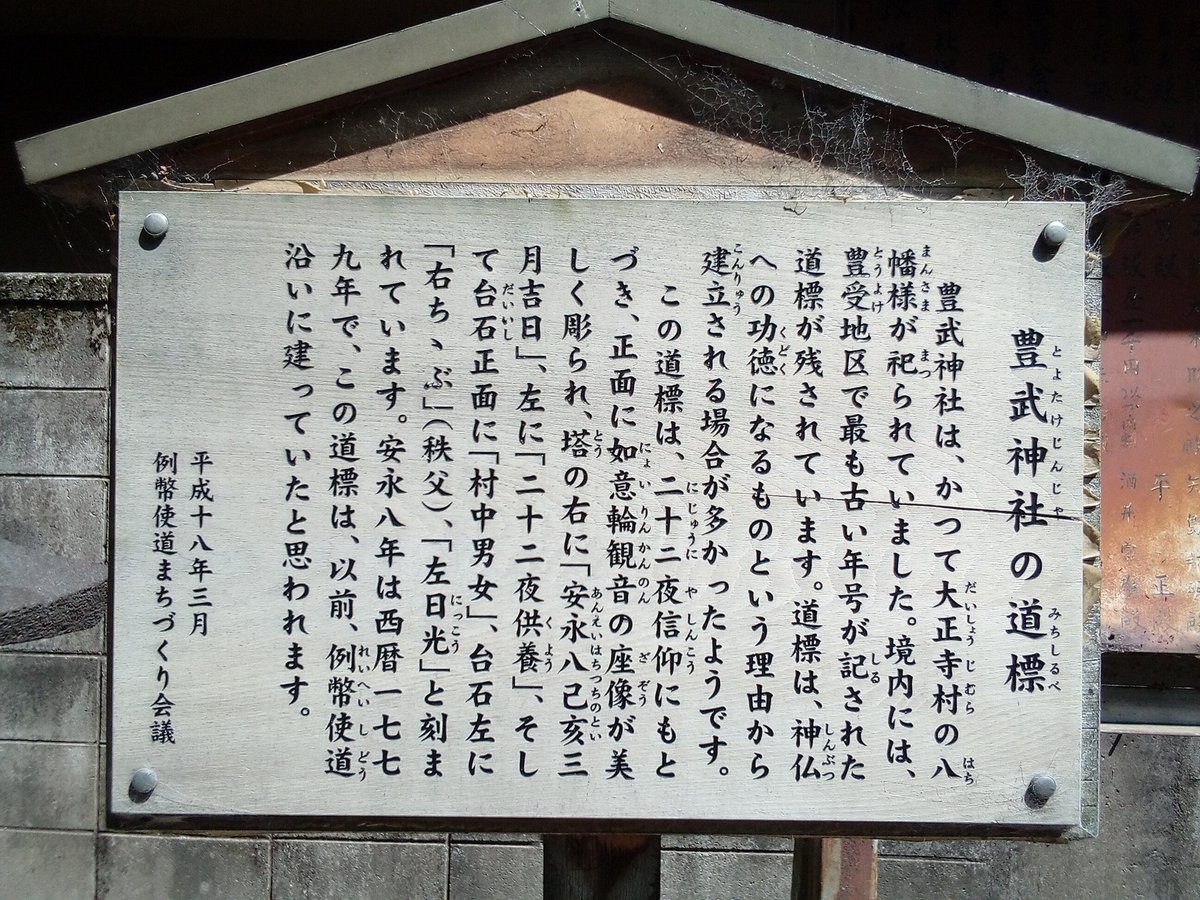 豊武神社の道標
豊武神社は、かつて大正寺村の八
幡様が祀られていました。境内には、
豊受地区で最も古い年号が記された
道標が残されています。道標は、神仏
への功徳になるものという理由から
建立される場合が多かったようです。
この道標は、二十二夜信仰にもと
づき、正面に如意輪観音の座像が美
しく彫られ、塔の右に「安永八己亥三
月吉日」、左に「二十二夜供養」、そし
て台石正面に「村中男女」、台石左に
「右ちゝぶ」（秩父）、「左日光」と刻ま
れています。安永八年は西暦一七七
九年で、この道標は、以前、例幣使道
沿いに建っていたと思われます。
平成十八年三月
例幣使道まちづくり会議